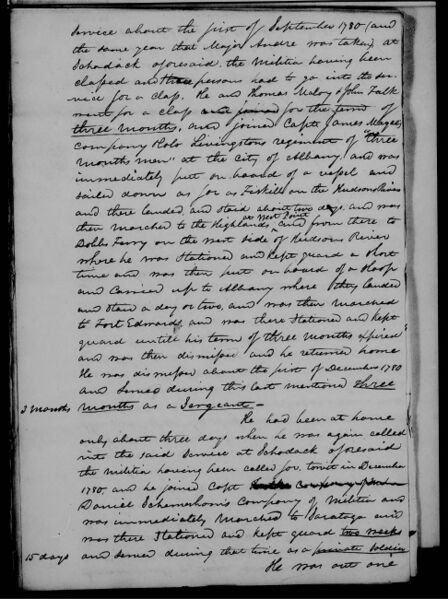 service about the first of September 1780 (and
the same year that Major Andre was taken) at
Schodack aforesaid, the Militia having been
classed and three persons had to go into the ser-
vice for a class. He and Thomas Maloy & John Falk
went for a class and joined for the term of
three months, and joined Capt James Magees
Company Rob Livingstons regiment of "three
months men" at the city of Albany, and was
immediately put on board of a vessel and
sailed down as far as Fiskill on the Hudsons River
and there landed, and staid about two days, and was
then marched to the Highlands or West Point and from there to
Dobbs Ferry on the west side of Hudsons River
where he was Stationed and kept guard a short
time and was then put on board of a Sloop
and carried up to Albany where they landed
and staid a day or two, and was then marched
to Fort Edwards, and was there Stationed and kept
guard untill his term of three months expired
and was then dismissed and he returned home
He was dismissed about the first of December 1780
and served during this last mentioned three
3 months months as a Sergeant—
He had been at home
only about three days when he was again called
into the said Service at Schodack aforesaid
the Militia having been called for, towit in December
1780, and he joined Capt
Daniel Schermehorn's Company of Militia and
was immediately marched to Saratoga and
was there Stationed and kept guard two weeks
15 days and served during that time as a private soldier
He was out one